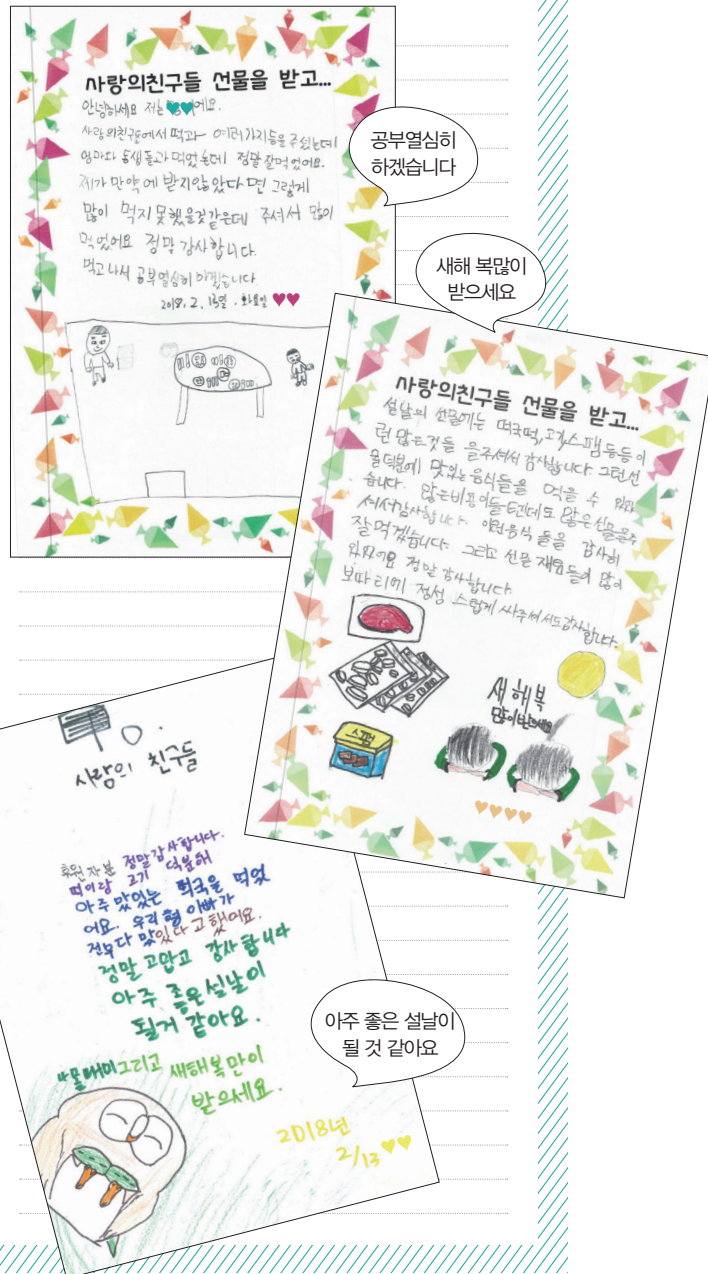 사랑의친구들 선물을 받고...
안녕하세요 저는 에요.
사랑의친구들에서 떡과 여러가지들을 주웠는데
엄마와 동생들과 먹었는데 정말 잘먹었어요.
제가 만약에 받지않았다면 그렇게
많이 먹지 못했을것같은데 주셔서 많이
먹었어요 정말 감사합니다.
먹고나서 공부열심히 하겠습니다.
2018. 2. 13일. 화요일
공부열심히
하겠습니다
새해 복많이
받으세요
사랑의친구들 선물을 받고...
설날의 선물에는 떡국떡, 고기, 스팸등등이
런 많은것들 을주셔서 감사합니다 그런선
물덕분에 맛있는음식들을 먹을 수
습니다. 많은비용이들텐데도 많은선물을주
셔서감사합니다. 이런음식 들을 감사히
잘먹겠습니다. 그리고 선물 재료들이 많이
와있어요 정말 감사합니다.
보따리에 정성 스럽게 싸주셔서도감사합니다.
스팸
새해복
많이받으세요
사랑의 친구들
후원자분 정말감사합니다.
떡이랑 고기 덕분에
아주 맛있는 떡국을 먹었
어요. 우리 형 아빠가
전부다 맛있다고했어요.
정말 고맙고 감사합니다
아주 좋은설날이
될거 같아요.
그리고 새해복만이
받으세요.
2018년
2/13
아주 좋은 설날이
될 것 같아요